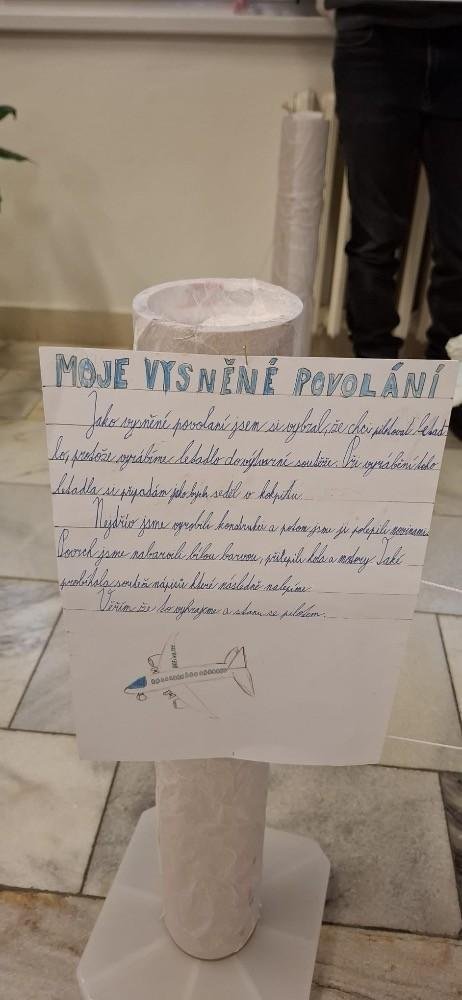 MOJE VYSNĚNÉ POVOLÁNÍ
Jako vysněné povolaní jsem si vybral, že chci pilotovat letad
lo, protože vyrábíme letadlo do výtvarné soutěže. Při vyrábění toho
letadla si připadám jako bych seděl v kokpitu.
Nejdřív jsme vyrobili konstrukci a potom jsme ji polepili novinami.
Povrch jsme nabarvili bílou barvou, přilepili kola a motory. Také
probíhala soutěž nápisů které následně nalepíme.
Věřím že to vyhrajeme a stanu se pilotem.